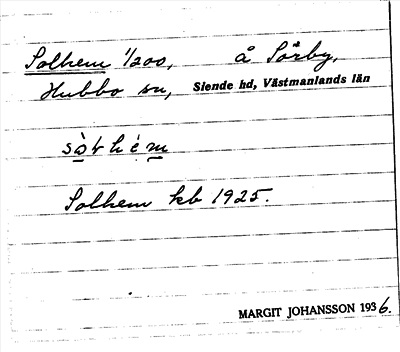 Solhem 1/200, å Sörby,
Hubbo sn, Siende hd, Västmanlands län
Solhem kb 1925.
MARGIT JOHANSSON 1936.